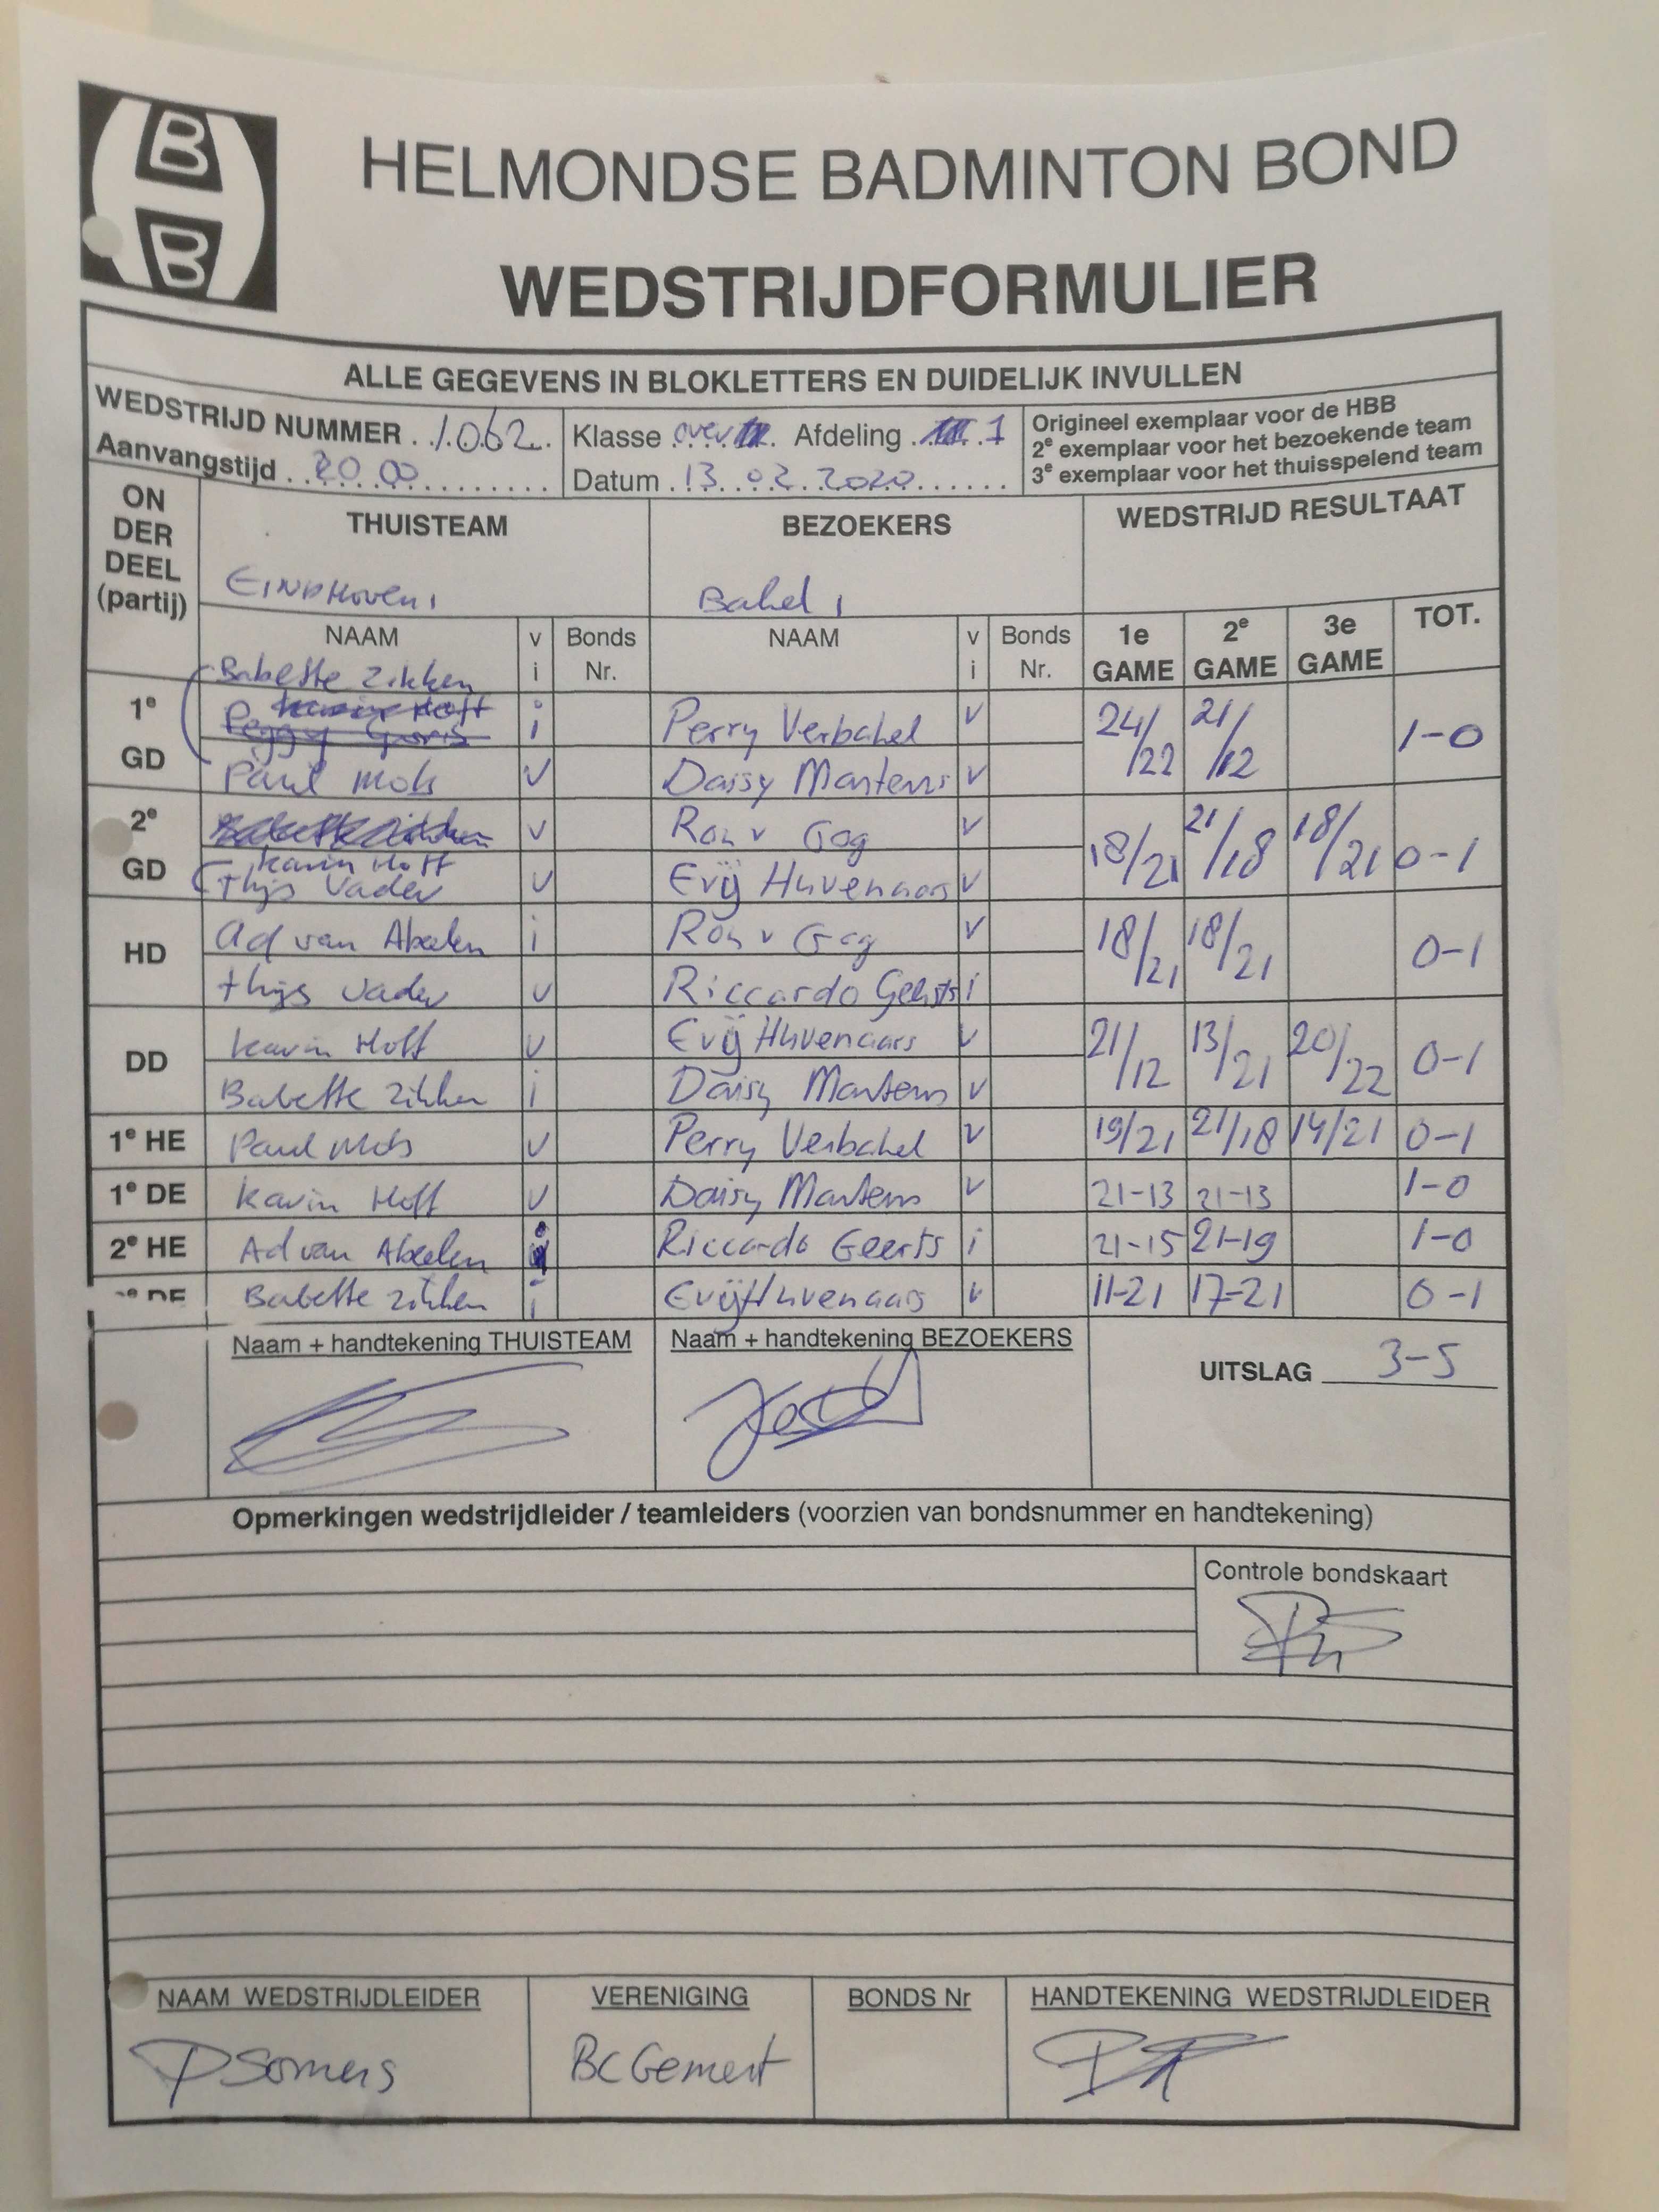 B
B
HELMONDSE BADMINTON BOND
WEDSTRIJDFORMULIER
ALLE GEGEVENS IN BLOKLETTERS EN DUIDELIJK INVULLEN
WEDSTRIJD NUMMER 1062 Klasse over Afdeling 1 Origineel exemplaar voor de HBB
2e exemplaar voor het bezoekende team
Aanvangstijd 20.00 Datum 13.02.2020 3e exemplaar voor het thuisspelend team
ON DER DEEL (partij) THUISTEAM BEZOEKERS WEDSTRIJD RESULTAAT
EINDHoven 1 Bakel 1
NAAM v i Bonds Nr. NAAM v i Bonds Nr. 1e GAME 2e GAME 3e GAME TOT.
Babette Zikken
1e GD Karin Hoff i Perry Verbakel v 24/22 21/12 1-0
Peggy i
Paul Mols v Daisy Martens v
2e GD v Ron v Gog v 18/21 21/18 18/21 0-1
Karin Hoff
Thijs Vader v Evij Huvenaars v
HD Ad van Abeelen i Ron v Gog v 18/21 18/21 0-1
Thijs Vader v Riccardo Geerts i
DD Karin Hoff v Evij Huvenaars v 21/12 13/21 20/22 0-1
Babette Zikken i Daisy Martens v
1e HE Paul Mols v Perry Verbakel v 19/21 21/18 14/21 0-1
1e DE Karin Hoff v Daisy Martens v 21-13 21-13 1-0
2e HE Ad van Abeelen i Riccardo Geerts i 21-15 21-19 1-0
DE Babette Zikken i Evij Huvenaars v 11-21 17-21 0-1
Naam + handtekening THUISTEAM Naam + handtekening BEZOEKERS UITSLAG 3-5
Opmerkingen wedstrijdleider / teamleiders (voorzien van bondsnummer en handtekening)
Controle bondskaart
NAAM WEDSTRIJDLEIDER VERENIGING BONDS Nr HANDTEKENING WEDSTRIJDLEIDER
P Somers BC Gemert